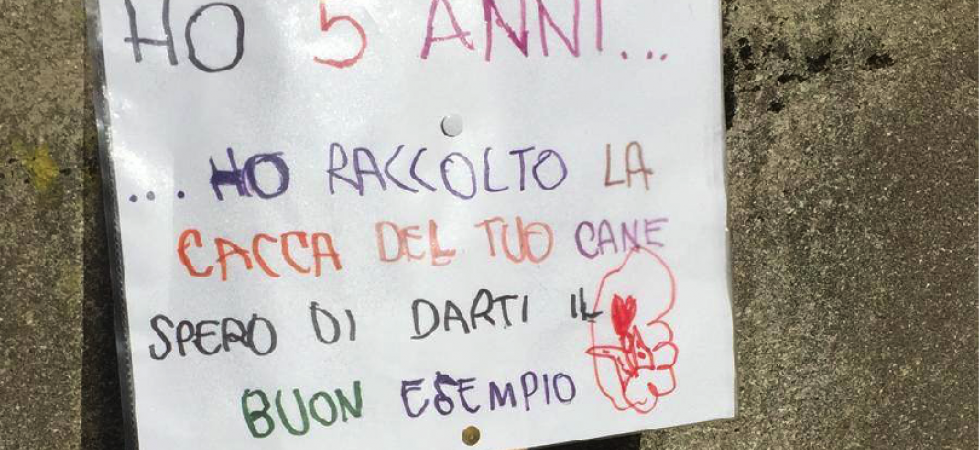 HO 5 ANNI...
... HO RACCOLTO LA
CACCA DEL TUO CANE
SPERO DI DARTI IL
BUON ESEMPIO